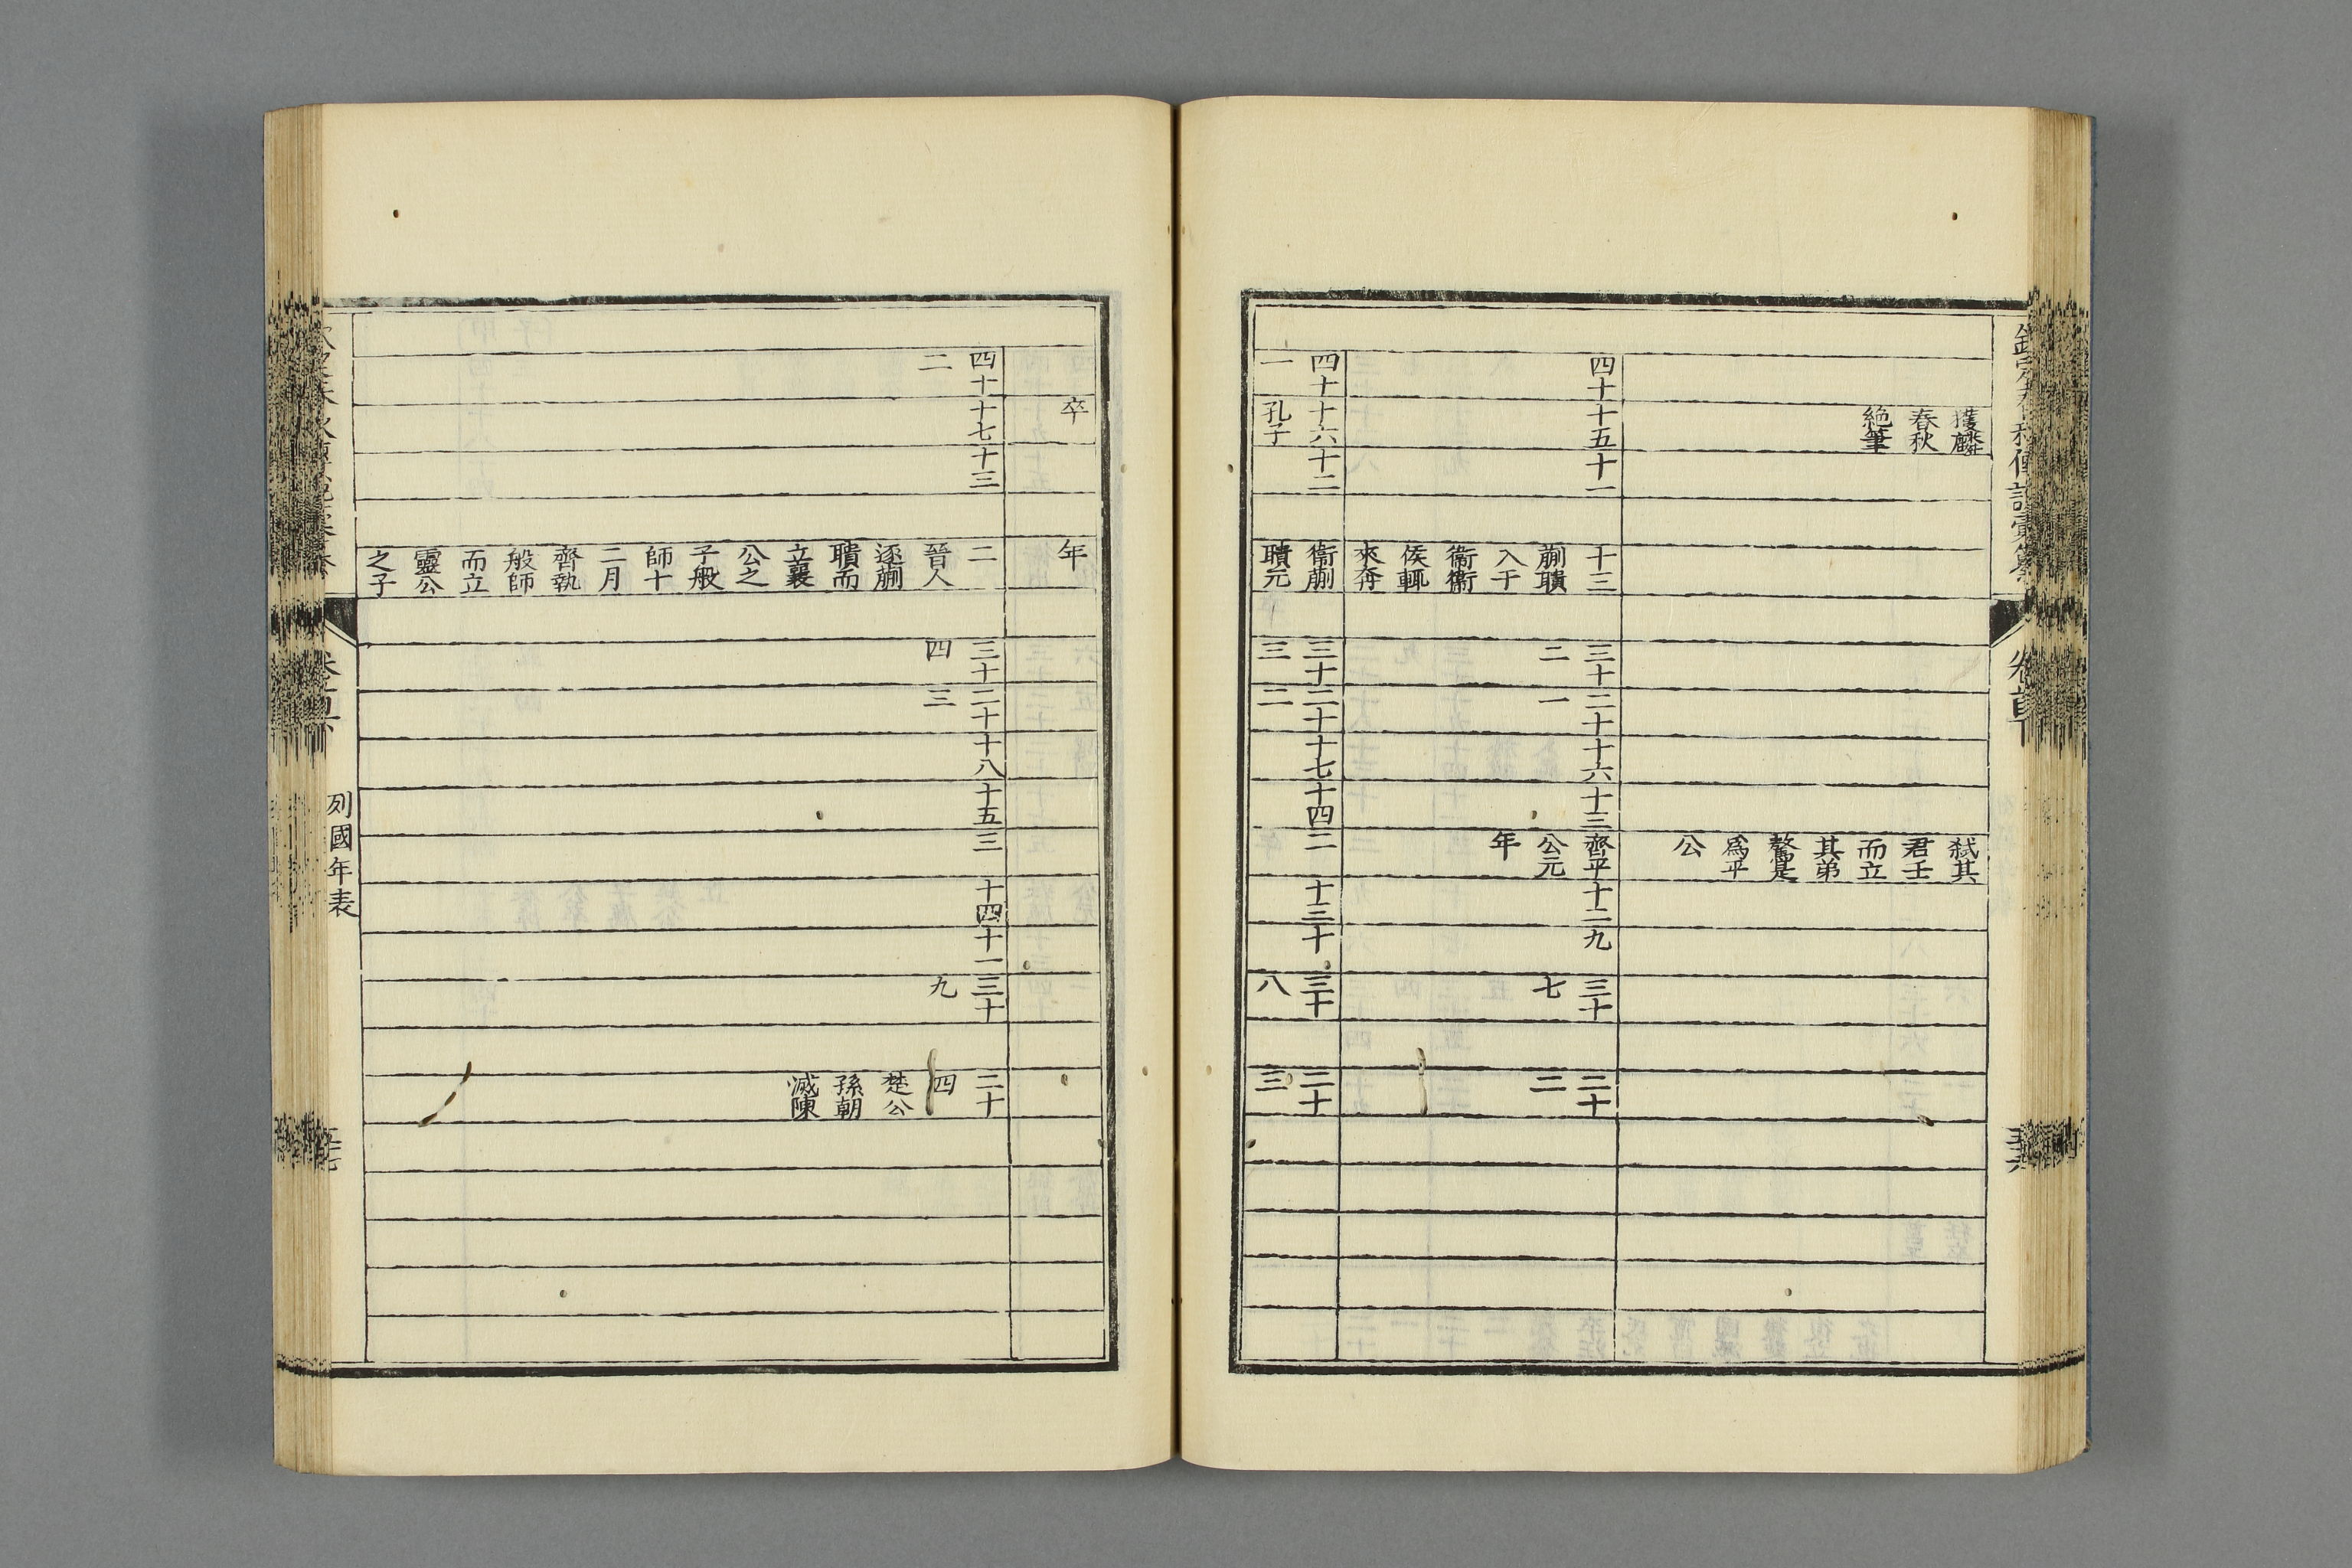 卷首下
獲麟
春秋
絕筆
弑其
君壬
而立
其弟
驁是
爲平
公
四十
十五
十一
十三
蒯聵
入于
衞衞
侯輒
來奔
三十
二
二十
一
十六
十三
齊平
公元
年
十二
九
三十
七
二十
二
四十
一
十六
孔子
十二
衞蒯
聵元
三十
三
二十
二
十七
十四
二
十三
十
三十
八
二十
三
卒
年
四十
二
十七
十三
二
晉人
逐蒯
聵而
立襄
公之
子般
師十
二月
齊執
般師
而立
靈公
之子
三十
四
二十
三
十八
十五
三
十四
十一
三十
九
二十
四
楚公
孫朝
滅陳
列國年表